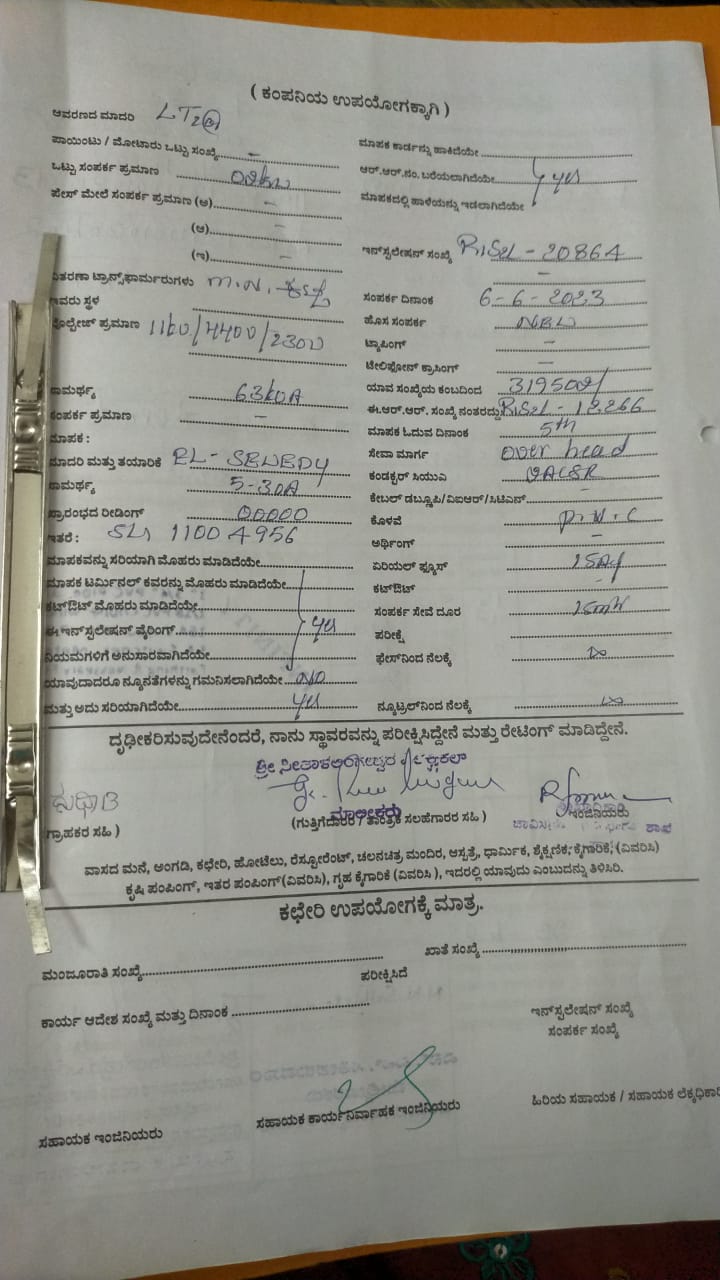 ( ಕಂಪನಿಯ ಉಪಯೋಗಕ್ಕಾಗಿ )
ಆವರಣದ ಮಾದರಿ LT2(a)
ಪಾಯಿಂಟು / ಮೋಟಾರು ಒಟ್ಟು ಸಂಖ್ಯೆ –
ಮಾಪಕ ಕಾರ್ಡನ್ನು ಹಾಕಿದೆಯೇ
ಒಟ್ಟು ಸಂಪರ್ಕ ಪ್ರಮಾಣ
ಆರ್.ಆರ್.ನಂ. ಬರೆಯಲಾಗಿದೆಯೇ yes
ಪೇಸ್ ಮೇಲೆ ಸಂಪರ್ಕ ಪ್ರಮಾಣ (ಅ) –
ಮಾಪಕದಲ್ಲಿ ಹಾಳೆಯನ್ನು ಇಡಲಾಗಿದೆಯೇ
(ಆ) –
(ಇ) –
ಇನ್‌ಸ್ಟಲೇಷನ್ ಸಂಖ್ಯೆ RJS2L - 20864
–
ವಿತರಣಾ ಟ್ರಾನ್ಸ್‌ಫಾರ್ಮರುಗಳು
ಅವರು ಸ್ಥಳ
ಸಂಪರ್ಕ ದಿನಾಂಕ 6-6-2023
ವೋಲ್ಟೇಜ್ ಪ್ರಮಾಣ
ಹೊಸ ಸಂಪರ್ಕ NEW
ಟ್ಯಾಪಿಂಗ್ –
ಟೆಲಿಫೋನ್ ಕ್ರಾಸಿಂಗ್ –
ಸಾಮರ್ಥ್ಯ 63kVA
ಯಾವ ಸಂಖ್ಯೆಯ ಕಂಬದಿಂದ
ಸಂಪರ್ಕ ಪ್ರಮಾಣ –
ಈ.ಆರ್.ಆರ್. ಸಂಖ್ಯೆ ನಂತರದ್ದು RJS2L - 12266
ಮಾಪಕ :
ಮಾಪಕ ಓದುವ ದಿನಾಂಕ 5th
ಮಾದರಿ ಮತ್ತು ತಯಾರಿಕೆ
ಸೇವಾ ಮಾರ್ಗ Over head
ಸಾಮರ್ಥ್ಯ 5-30A
ಕಂಡಕ್ಟರ್ ಸಿಯುಎ
ಕೇಬಲ್ ಡಬ್ಲೂಪಿ/ವಿಐಆರ್/ಸಿಟಿಎನ್ –
ಪ್ರಾರಂಭದ ರೀಡಿಂಗ್ 00000
ಕೊಳವೆ P.V.C
ಇತರೆ : SL, 11004956
ಅರ್ಥಿಂಗ್ –
ಮಾಪಕವನ್ನು ಸರಿಯಾಗಿ ಮೊಹರು ಮಾಡಿದೆಯೇ
ಏರಿಯಲ್ ಫ್ಯೂಸ್
ಮಾಪಕ ಟರ್ಮಿನಲ್ ಕವರನ್ನು ಮೊಹರು ಮಾಡಿದೆಯೇ
ಕಟ್‌ಔಟ್ –
ಕಟ್‌ಔಟ್ ಮೊಹರು ಮಾಡಿದೆಯೇ
ಸಂಪರ್ಕ ಸೇವೆ ದೂರ
ಈ ಇನ್‌ಸ್ಟಲೇಷನ್ ವೈರಿಂಗ್ yes
ಪರೀಕ್ಷೆ
ನಿಯಮಗಳಿಗೆ ಅನುಸಾರವಾಗಿದೆಯೇ
ಫೇಸ್‌ನಿಂದ ನೆಲಕ್ಕೆ ∞
ಯಾವುದಾದರೂ ನ್ಯೂನತೆಗಳನ್ನು ಗಮನಿಸಲಾಗಿದೆಯೇ NO
ಮತ್ತು ಅದು ಸರಿಯಾಗಿದೆಯೇ yes
ನ್ಯೂಟ್ರಲ್‌ನಿಂದ ನೆಲಕ್ಕೆ ∞
ದೃಢೀಕರಿಸುವುದೇನೆಂದರೆ, ನಾನು ಸ್ಥಾವರವನ್ನು ಪರೀಕ್ಷಿಸಿದ್ದೇನೆ ಮತ್ತು ರೇಟಿಂಗ್ ಮಾಡಿದ್ದೇನೆ.
ಶ್ರೀ
ಮಾಲೀಕರು
ಗ್ರಾಹಕರ ಸಹಿ )
(ಗುತ್ತಿಗೆದಾರರ / ತಾಂತ್ರಿಕ ಸಲಹೆಗಾರರ ಸಹಿ )
ಇಂಜಿನಿಯರು
ವಾಸದ ಮನೆ, ಅಂಗಡಿ, ಕಛೇರಿ, ಹೋಟೆಲು, ರೆಸ್ಟೋರೆಂಟ್, ಚಲನಚಿತ್ರ ಮಂದಿರ, ಆಸ್ಪತ್ರೆ, ಧಾರ್ಮಿಕ, ಶೈಕ್ಷಣಿಕ, ಕೈಗಾರಿಕೆ, (ವಿವರಿಸಿ)
ಕೃಷಿ ಪಂಪಿಂಗ್, ಇತರ ಪಂಪಿಂಗ್(ವಿವರಿಸಿ), ಗೃಹ ಕೈಗಾರಿಕೆ (ವಿವರಿಸಿ ), ಇದರಲ್ಲಿ ಯಾವುದು ಎಂಬುದನ್ನು ತಿಳಿಸಿರಿ.
ಕಛೇರಿ ಉಪಯೋಗಕ್ಕೆ ಮಾತ್ರ.
ಮಂಜೂರಾತಿ ಸಂಖ್ಯೆ
ಖಾತೆ ಸಂಖ್ಯೆ
ಪರೀಕ್ಷಿಸಿದೆ
ಕಾರ್ಯ ಆದೇಶ ಸಂಖ್ಯೆ ಮತ್ತು ದಿನಾಂಕ
ಇನ್‌ಸ್ಟಲೇಷನ್ ಸಂಖ್ಯೆ
ಸಂಪರ್ಕ ಸಂಖ್ಯೆ
ಸಹಾಯಕ ಇಂಜಿನಿಯರು
ಸಹಾಯಕ ಕಾರ್ಯನಿರ್ವಾಹಕ ಇಂಜಿನಿಯರು
ಹಿರಿಯ ಸಹಾಯಕ / ಸಹಾಯಕ ಲೆಕ್ಕಧಿಕಾರಿ